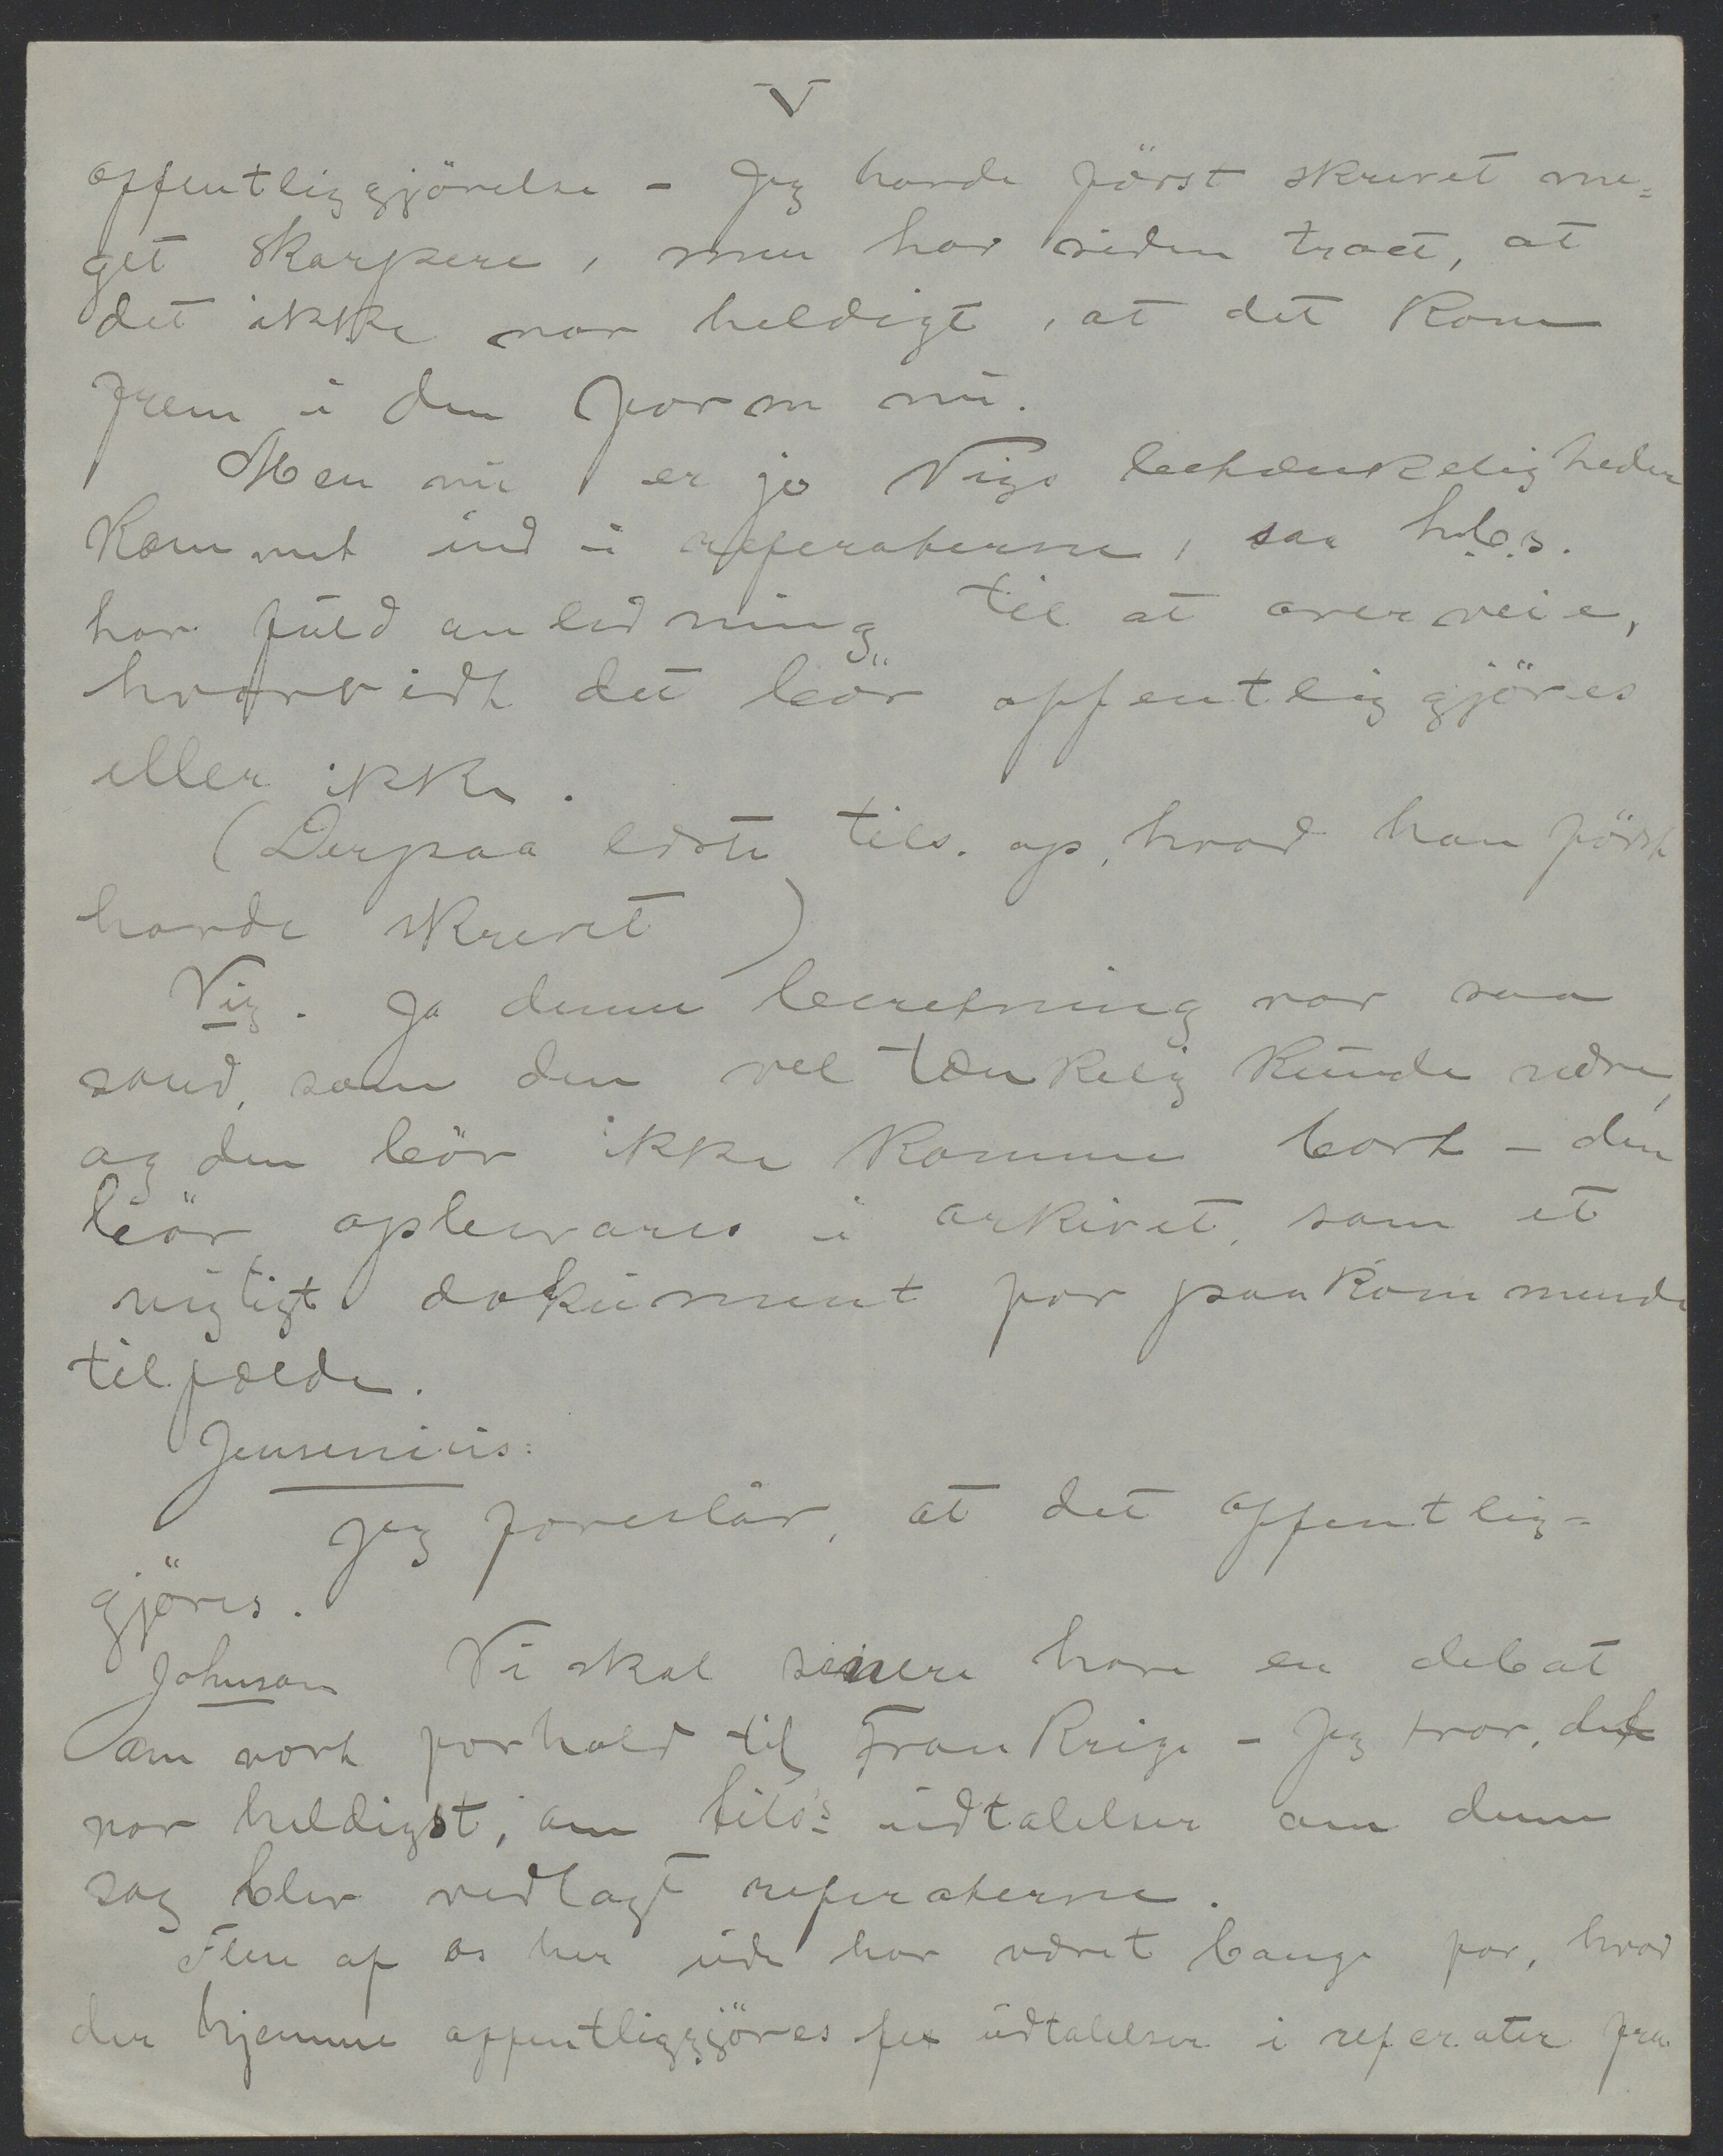 V
offentliggjörelse – Jeg havde först skrevet me=
get skarpere, men har siden troet, at
det ikke var heldigt, at det kom
frem i den form nu.
Men nu er jo Vigs betænkeligheder
kommet ind i referaterne, saa h.b.s.
har fuld anledning til at overveie,
hvorvidt det bör offentliggjöres
eller ikke.
(Derpaa læste tils. op, hvad han först
havde skrevet)
Vig. Ja denne beretning var saa
sand, som den vel tænkelig kunde være,
og den bör ikke komme bort – den
bör opbevares i arkivet, som et
vigtigt dokument for paakommende
tilfælde.
Jensenius:
Jeg foreslår, at det offentlig=
gjöres.
Johnson Vi skal senere have en debat
om vort forhold til Frankrige – Jeg tror, det
var heldigst, om tils's udtalelser om denne
sag blev vedlagt referaterne.
Flere af os her ude har været bange for, hvad
der hjemme offentliggjöres fex udtalelser i referater fra